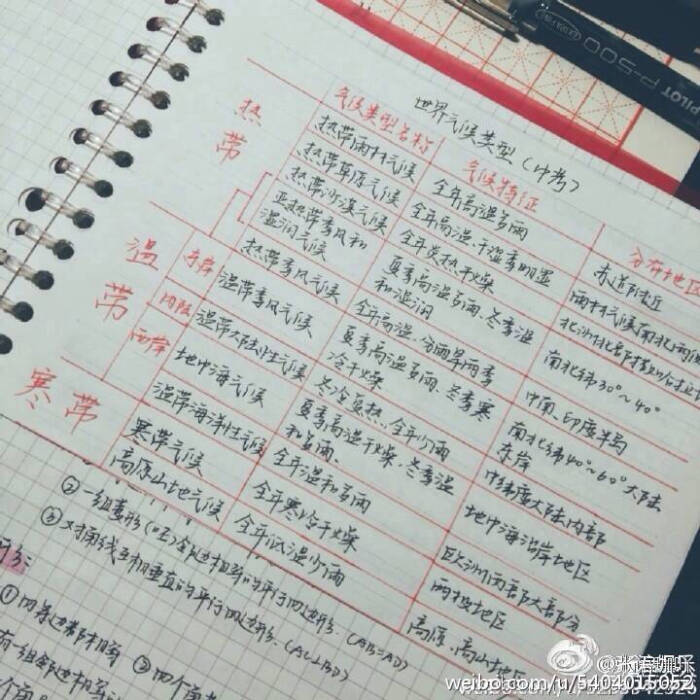 世界气候类型(中考)
气候类型名称 气候特征 分布地区
热带
热带雨林气候 全年高温多雨 赤道附近
热带草原气候 全年高温、干湿季明显 雨林气候南北两侧
热带沙漠气候 全年炎热干燥
亚热带季风和湿润气候 夏季高温多雨、冬季温和湿润 南北纬30°~40°
热带季风气候 全年高温、分两旱雨季 中南、印度半岛
温带
东岸 温带季风气候 夏季高温多雨、冬季寒冷干燥 南北纬40°~60°大陆东岸
内陆 温带大陆性气候 冬冷夏热、全年少雨 中纬度大陆内部
西岸 地中海气候 夏季高温干燥、冬季温和多雨、 地中海沿岸地区
温带海洋性气候 全年温和多雨 欧洲西部大部分
寒带
寒带气候 全年寒冷干燥 两极地区
高原山地气候 全年低温少雨 高原、高山地区
②一组菱形
③对角线互相垂直的平行四边形、(AC⊥BD)
(AB=AD)
①四条边都相等
有一组邻边相等
PILOT P-500
weibo.com/u/5404015052